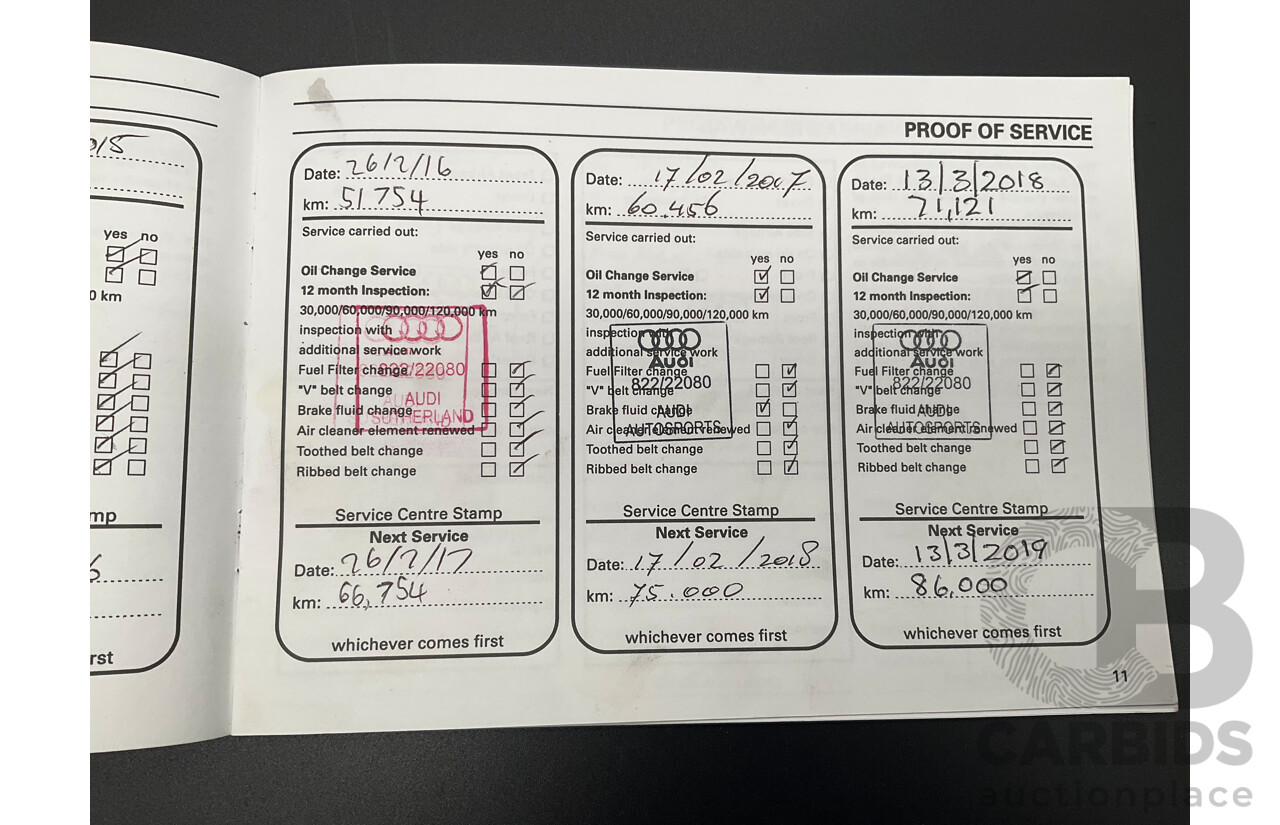 015
yes no
0 km
mp
6
rst
PROOF OF SERVICE
Date: 26/2/16
km: 51754
Service carried out:
yes no
Oil Change Service
12 month Inspection:
30,000/60,000/90,000/120,000 km
inspection with
additional service work
Fuel Filter change
"V" belt change
Brake fluid change
Air cleaner element renewed
Toothed belt change
Ribbed belt change
822/22080
AUDI
SUTHERLAND
Service Centre Stamp
Next Service
Date: 26/2/17
km: 66,754
whichever comes first
Date: 17/02/2007
km: 60.456
Service carried out:
yes no
Oil Change Service
12 month Inspection:
30,000/60,000/90,000/120,000 km
inspection with
additional service work
Fuel Filter change
"V" belt change
Brake fluid change
Air cleaner element renewed
Toothed belt change
Ribbed belt change
Audi
822/22080
AUDI
AUTOSPORTS
Service Centre Stamp
Next Service
Date: 17/02/2018
km: 75.000
whichever comes first
Date: 13/3/2018
km: 71,121
Service carried out:
yes no
Oil Change Service
12 month Inspection:
30,000/60,000/90,000/120,000 km
inspection with
additional service work
Fuel Filter change
"V" belt change
Brake fluid change
Air cleaner element renewed
Toothed belt change
Ribbed belt change
Audi
822/22080
AUDI
AUTOSPORTS
Service Centre Stamp
Next Service
Date: 13/3/2019
km: 86,000
whichever comes first
11
CB
CARBIDS
auctionplace